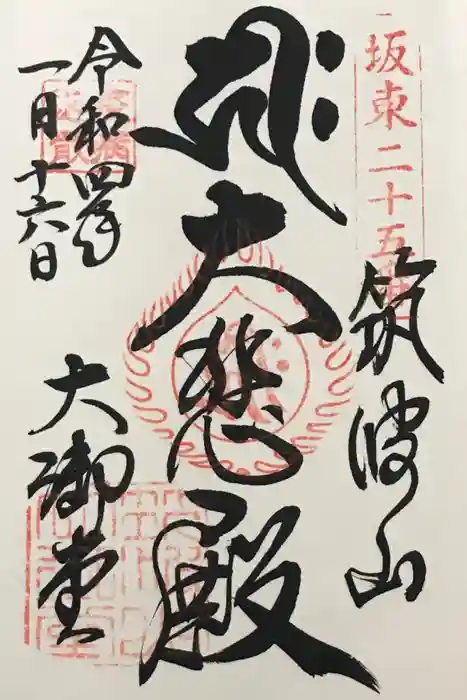 坂東二十五番
筑波山
𑖮𑖿𑖨𑖱𑖾 大悲殿
令和四年
一月十六日
大御堂